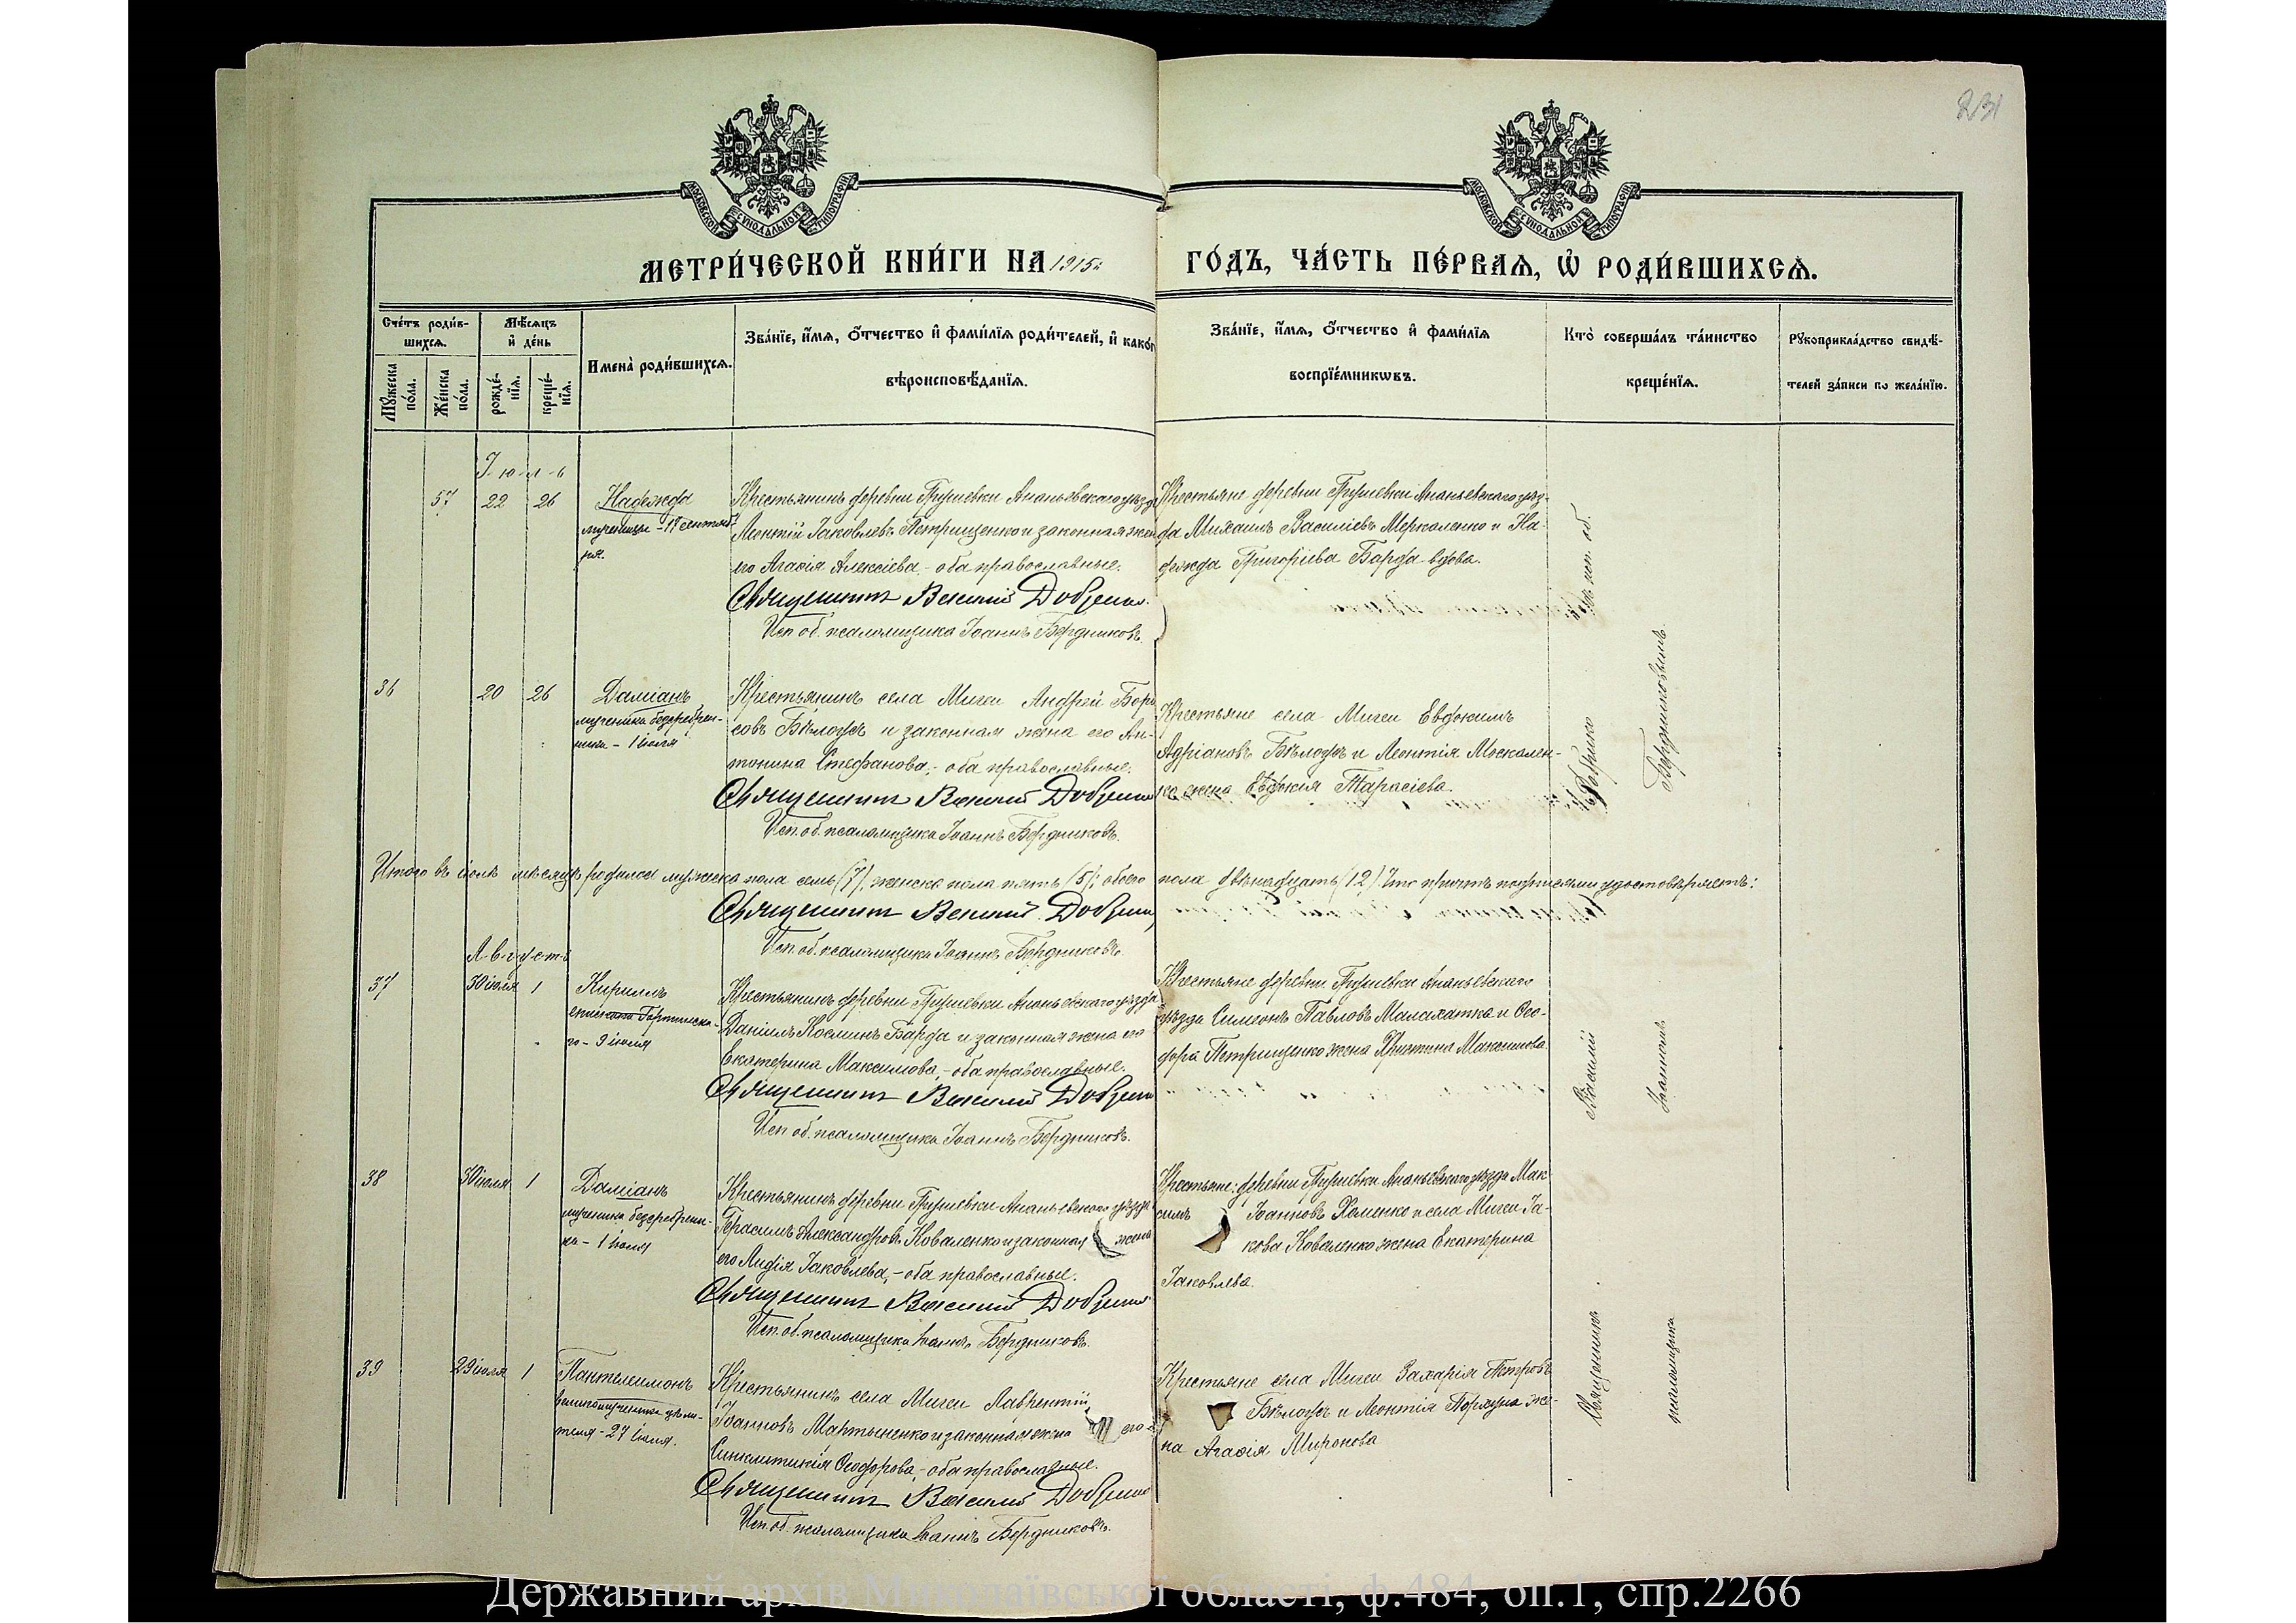 231
МОСКОВСКОЙ СѴНОДАЛЬНОЙ ТИПОГРАФІИ
МОСКОВСКОЙ СѴНОДАЛЬНОЙ ТИПОГРАФІИ
МЕТРИ́ЧЕСКОЙ КНИ́ГИ НА 1915й ГО́ДЪ, ЧА́СТЬ ПЕ́РВАѦ, Ѽ РОДИ́ВШИХСѦ.
Сче́тъ роди́в-
шихсѧ.
Мꙋ́жеска по́ла.
Же́нска по́ла.
Мѣ́сѧцъ
и҆ де́нь
рожде́-
нїѧ.
креще́-
нїѧ.
Имена̀ роди́вшихсѧ.
Зва́нїе, и҆́мѧ, ѻ҆́тчество и҆ фами́лїѧ роди́телей, и҆ како́г
вѣроисповѣ́данїѧ.
Зва́нїе, и҆́мѧ, ѻ҆́тчество и҆ фами́лїѧ
воспрїе́мникѡвъ.
Кто̀ соверша́лъ та́инство
креще́нїѧ.
Рꙋкоприкла́дство свидѣ́-
телей за́писи по жела́нїю.
Іюль
57 22 26
Надежда
мученицы - 17 сентяб-
ря.
Крестьянинъ деревни Грушевки Ананьевскаго уѣзда
Леонтій Іаковлевъ Петрищенко и законная жена
его Агаѳія Алексіева - оба православные.
Священникъ Василий Добрянко
Исп. об. псаломщика Іоаннъ Бердниковъ.
Крестьяне деревни Грушевки Ананьевскаго уѣз-
да Михаилъ Василіевъ Меркаленко и На-
дежда Григоріева Барда вдова.
36 20 26
Даміанъ
мученика безсребрен-
ника - 1 іюля
Крестьянинъ села Мигеи Андрей Бори
совъ Бѣлоусъ и законная жена его Ан-
тонина Стефанова, - оба православные.
Исп. об. псаломщика Іоаннъ Бердниковъ.
Крестьяне села Мигеи Евдокимъ
Адріановъ Бѣлоусъ и Леонтія Москален-
ка жена Евдокія Тарасіева.
Итого въ іюлѣ мѣсяцѣ родилось мужеска пола семь (7), женска пола пять (5); обоего пола двѣнадцать (12) Что причтъ подписями удостовѣряетъ:
Исп. об. псаломщика Іоаннъ Бердниковъ.
Августъ
37 30 іюля 1
Кириллъ
епископа Гортинска-
го - 9 іюля
Крестьянинъ деревни Грушевки Ананьевскаго уѣзда
Даніилъ Косминъ Барда и законная жена его
Екатерина Максимова, - оба православные.
Исп. об. псаломщика Іоаннъ Бердниковъ.
Крестьяне деревни Грушевки Ананьевскаго
уѣзда Симеонъ Павловъ Малахатка и Ѳео-
дора Петрищенко жена Христина Максимова
38 30 іюля 1
Даміанъ
мученика безсребрен-
ка - 1 іюля
Крестьянинъ деревни Грушевки Ананьевскаго уѣзда
Герасимъ Александровъ Коваленко и законная жена
его Лидія Іаковлева, - оба православные.
Исп. об. псаломщика Іоаннъ Бердниковъ.
Крестьяне: деревни Грушевки Ананьевскаго уѣзда Мак-
симъ Іоанновъ Хоменко и села Мигеи Іа-
кова Коваленко жена Екатерина
Іаковлева.
39 29 іюля 1
Пантелеимонъ
великомученика цѣли-
теля - 27 іюля.
Крестьянинъ села Мигеи Лаврентій
Іоанновъ Мартыненко и законная жена его
Синклитикія Ѳеодорова, - оба православные.
Исп. об. псаломщика Іоаннъ Бердниковъ.
Крестьяне села Мигеи Захарія Петровъ
Бѣлоусъ и Леонтія же-
на Агаѳія Миронова
Священникъ Василій
псаломщика Іоанномъ Бердниковымъ.
Державний архів Миколаївської області, ф.484, оп.1, спр.2266